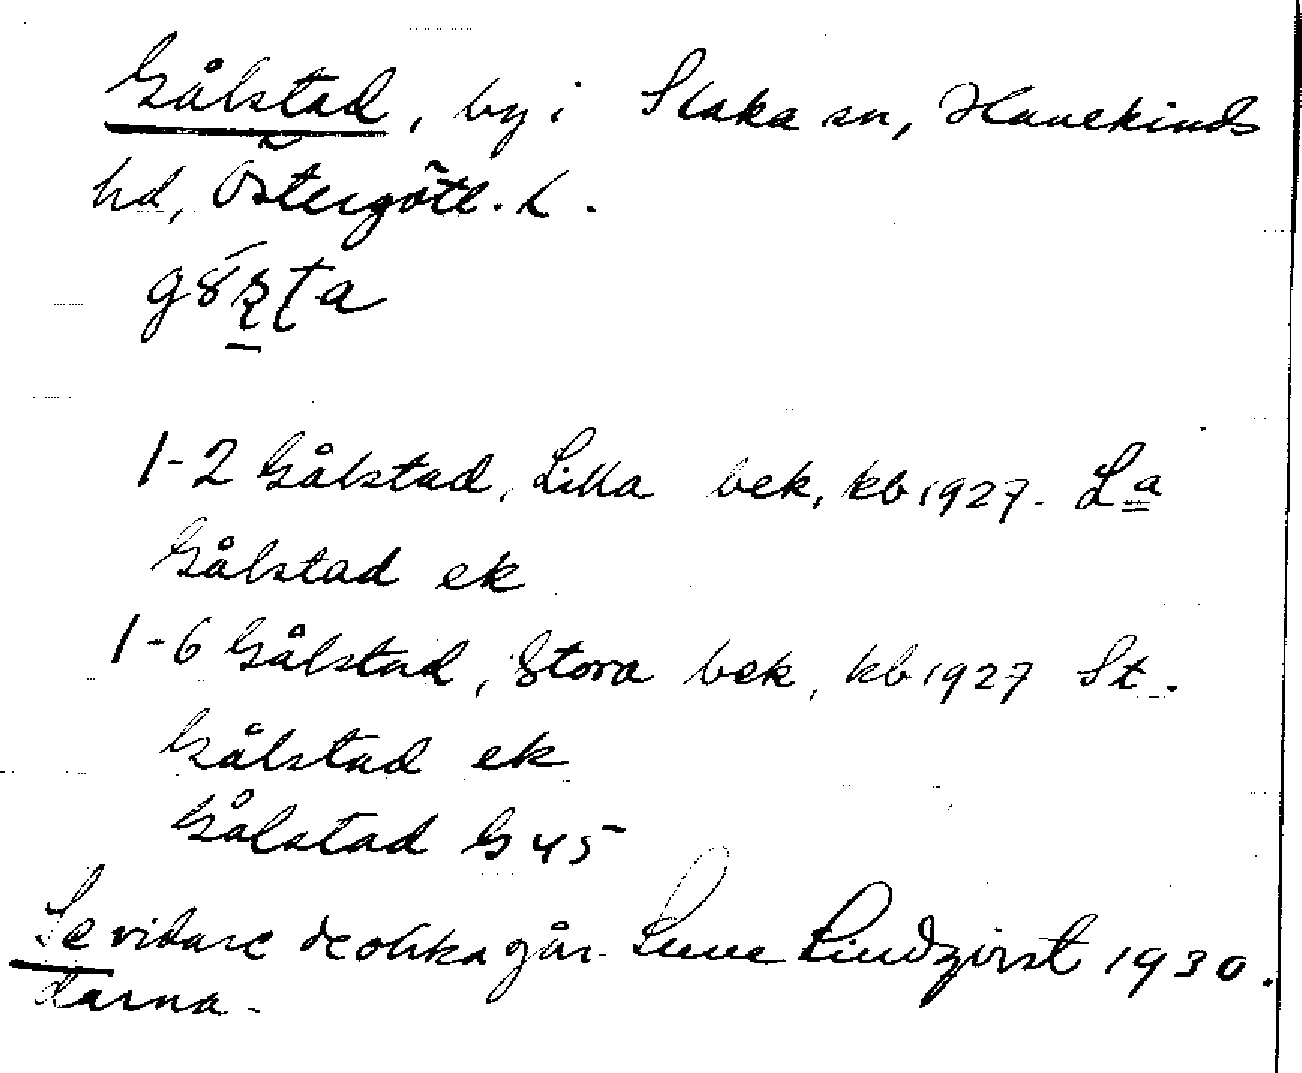 Gålstad, by i Slaka sn, Hanekinds
hd, Östergötl. l.
1-2 Gålstad, Lilla bek, kb 1927. La
Gålstad ek
1-6 Gålstad, Stora bek, kb 1927 St.
Gålstad ek
Gålstad G 45
Se vidare de olika går- Sune Lindqvist 1930.
darna.